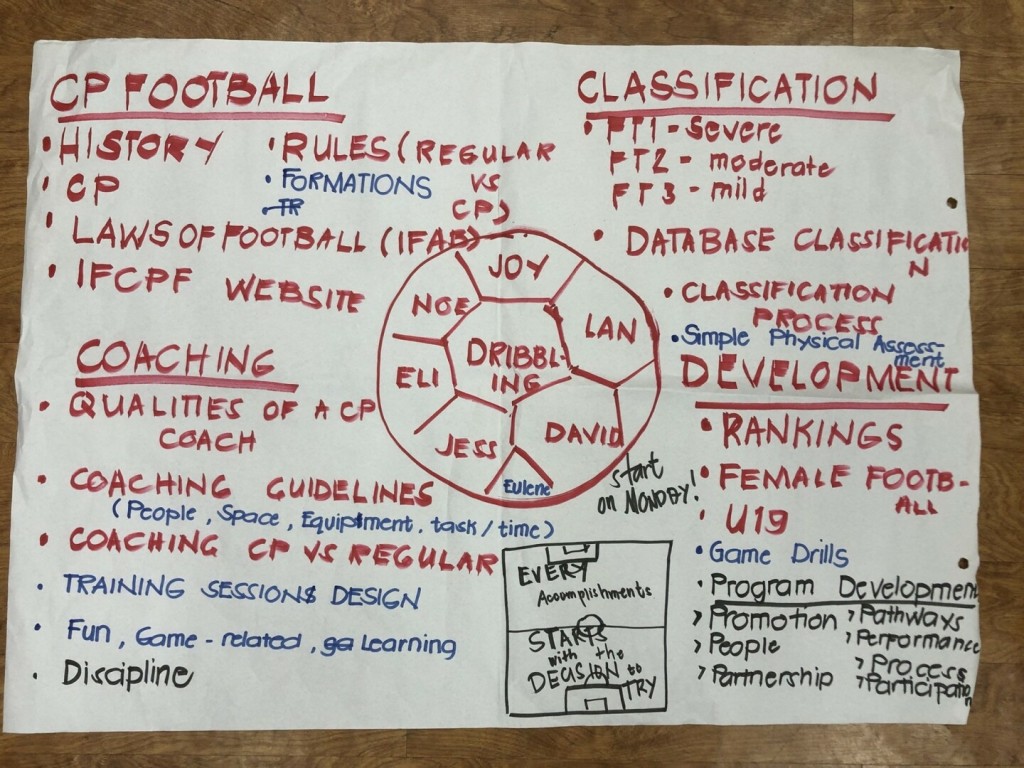 CP FOOTBALL
• HISTORY
• CP
• LAWS OF FOOTBALL (IFAB)
• IFCPF WEBSITE
• RULES (REGULAR
VS
CP)
• FORMATIONS
• TR
CLASSIFICATION
• FT1 - severe
FT2 - moderate
FT3 - mild
• DATABASE CLASSIFICATIO
N
• CLASSIFICATION
PROCESS
• Simple Physical Assess-
ment
JOY
NOE
LAN
DRIBBL-
ING
ELI
JESS
DAVID
Eulene
start
on MONDAY!
COACHING
• QUALITIES OF A CP
COACH
• COACHING GUIDELINES
(People, Space, Equipment, task/time)
• COACHING CP VS REGULAR
• TRAINING SESSIONS DESIGN
• Fun, Game-related, ga Learning
• Discipline
EVERY
Accomplishments
STARTS
with the
DECISION to
TRY
DEVELOPMENT
• RANKINGS
• FEMALE FOOTB-
ALL
• U19
• Game Drills
• Program Development
> Promotion
> People
> Partnership
> Pathways
> Performance
> Process
> Participation